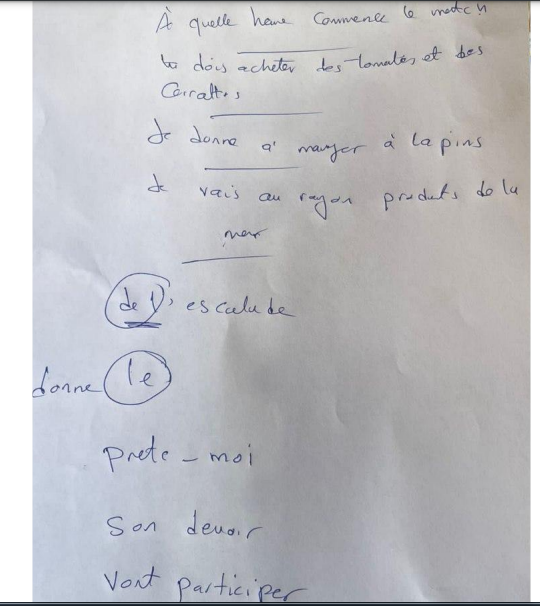 À quelle heure commence le match
tu dois acheter des tomates et des
Carottes
Je donne a' manger à lapins
Je vais au rayon produits de la
mer
de l'escalade
donne le
prete-moi
son devoir
vont participer